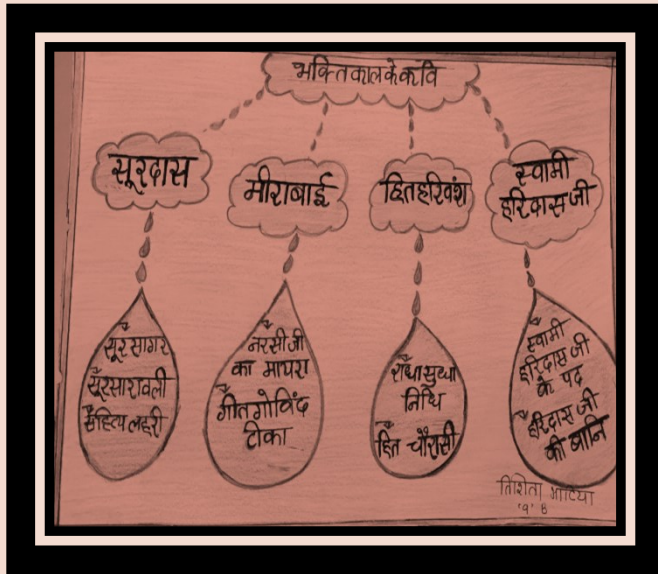 भक्तिकाल के कवि
सूरदास
मीराबाई
हितहरिवंश
स्वामी
हरिदास जी
सूर सागर
सूरसारावली
साहित्य लहरी
नरसी जी
का मायरा
गीत गोविंद
टीका
राधासुधा
निधि
हित चौरासी
स्वामी
हरिदास जी
के पद
हरिदास जी
की बानि
भाटिया
'9' B